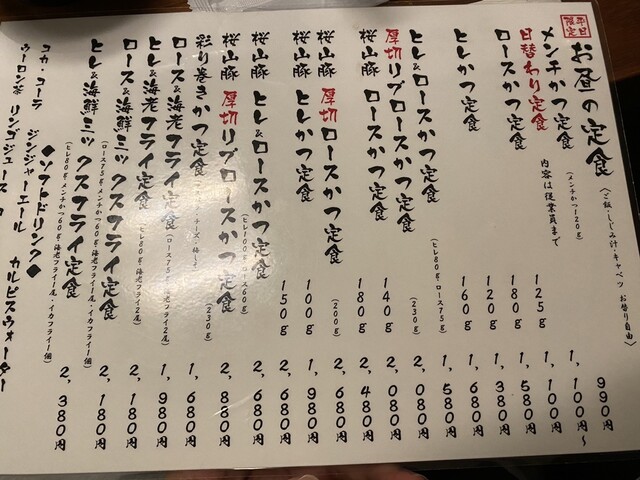 平日限定 お昼の定食 (ご飯・しじみ汁・キャベツ お替り自由)
メンチかつ定食 (メンチかつ120g) 990円
日替わり定食 内容は従業員まで 1,100円〜
ロースかつ定食 125g 1,100円
180g 1,580円
ヒレかつ定食 120g 1,380円
160g 1,680円
ヒレ&ロースかつ定食 (ヒレ80g・ロース75g) 1,580円
厚切リブロースかつ定食 (230g) 2,080円
桜山豚 ロースかつ定食 140g 2,080円
180g 2,480円
桜山豚 厚切ロースかつ定食 (200g) 2,680円
桜山豚 ヒレかつ定食 100g 1,980円
150g 2,680円
桜山豚 ヒレ&ロースかつ定食 (ヒレ100g ロース60g) 2,680円
桜山豚 厚切リブロースかつ定食 (230g) 2,880円
彩り巻きかつ定食 1,680円
ロース&海老フライ定食 (ロース75g・海老フライ2尾) 1,980円
ヒレ&海老フライ定食 (ヒレ80g・海老フライ2尾) 2,180円
ロース&海鮮ミックスフライ定食 (ロース75g・メンチかつ60g・海老フライ1尾・イカフライ1個) 2,180円
ヒレ&海鮮ミックスフライ定食 (ヒレ80g・メンチかつ60g・海老フライ1尾・イカフライ1個) 2,380円
◆ソフトドリンク◆
コカ・コーラ ジンジャーエール カルピスウォーター
ウーロン茶 リンゴジュース